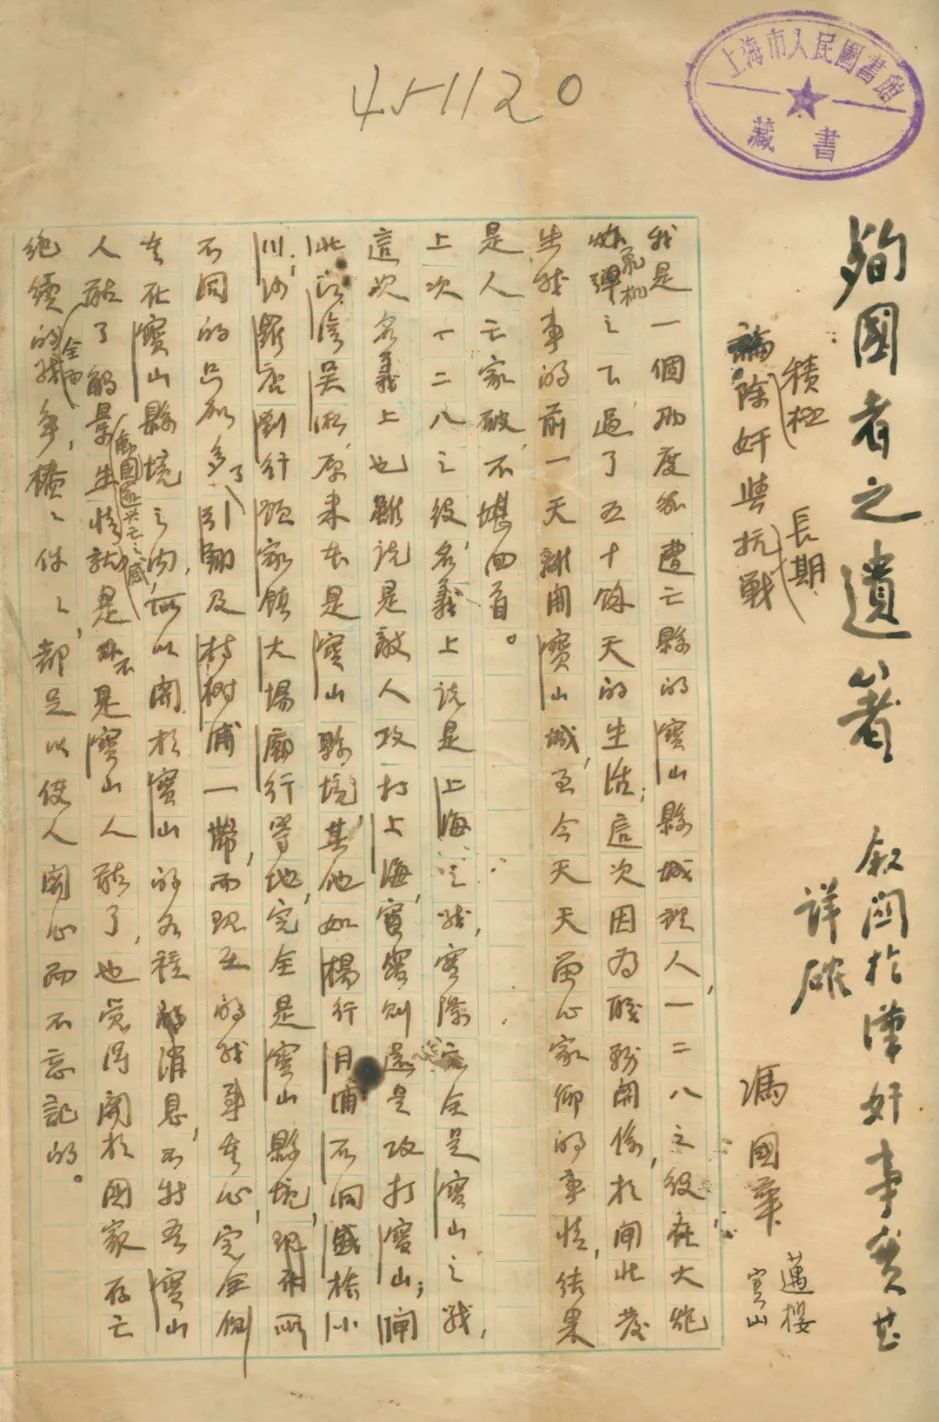 上海市人民圖書館
藏書
451120
殉國者之遺著 叙關於漢奸事實甚
詳確
積極 長期
除奸與抗戰 馮國華
邁櫻
寶山
我是一個兩度家遭亡縣的寶山縣城裡人,一二八之役在大炮
炸彈飛機之下過了五十餘天的生活;這次因為職務關係,於閘北發
生戰事的前一天離開寶山城,至今天天面心家鄉的事情,結果
是人亡家破,不堪回首。
上次一二八之役,名義上說是上海之戰,實際完全是寶山之戰,
這次名義上也雖說是敵人攻打上海,實際則還是攻打寶山;閘
北江湾吳淞,原來本是寶山縣境,其他如楊行月浦石洞盛橋小
川沙羅店劉行顧家鎮大場廟行等地,完全是寶山縣境,現所
不同的只加多了引翔及楊樹浦一帶,而現在的戰事重心,完全側
重在寶山縣境之內,所以關於寶山的各種消息,不特吾寶山
人聽了觸景生情就是不是寶山人聽了,也覺得關於國家存亡
絕續的全面戰爭,樁樁件件,都足以使人關心而不忘記的。